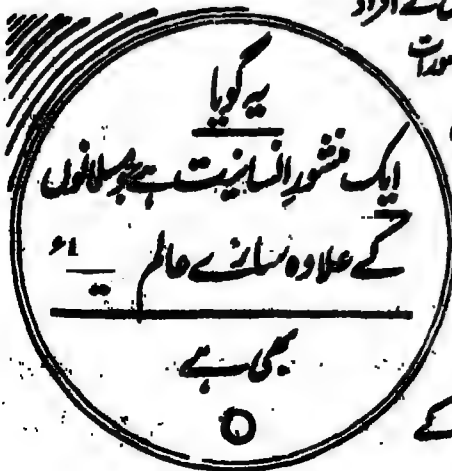 افراد
یہ گویا
ایک منشورِ انسانیت ہے جو مسلمانوں
کے علاوہ سارے عالم
بھی ہے
کے